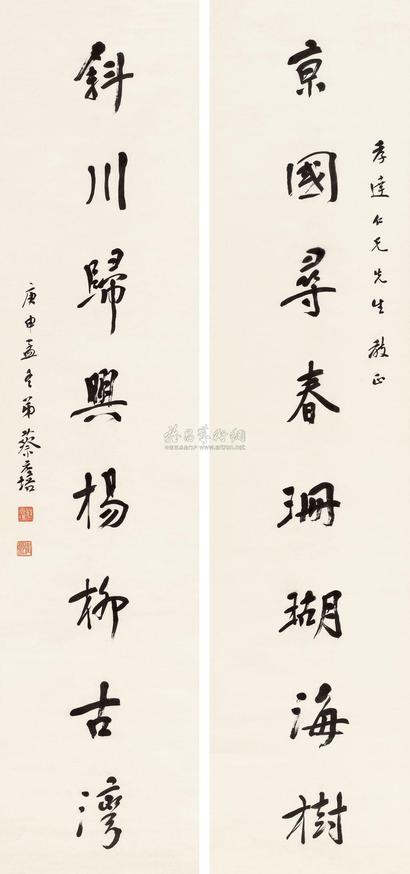 季達仁兄先生教正
京國尋春珊瑚海樹
斜川歸興楊柳古灣
庚申孟冬弟蔡元培